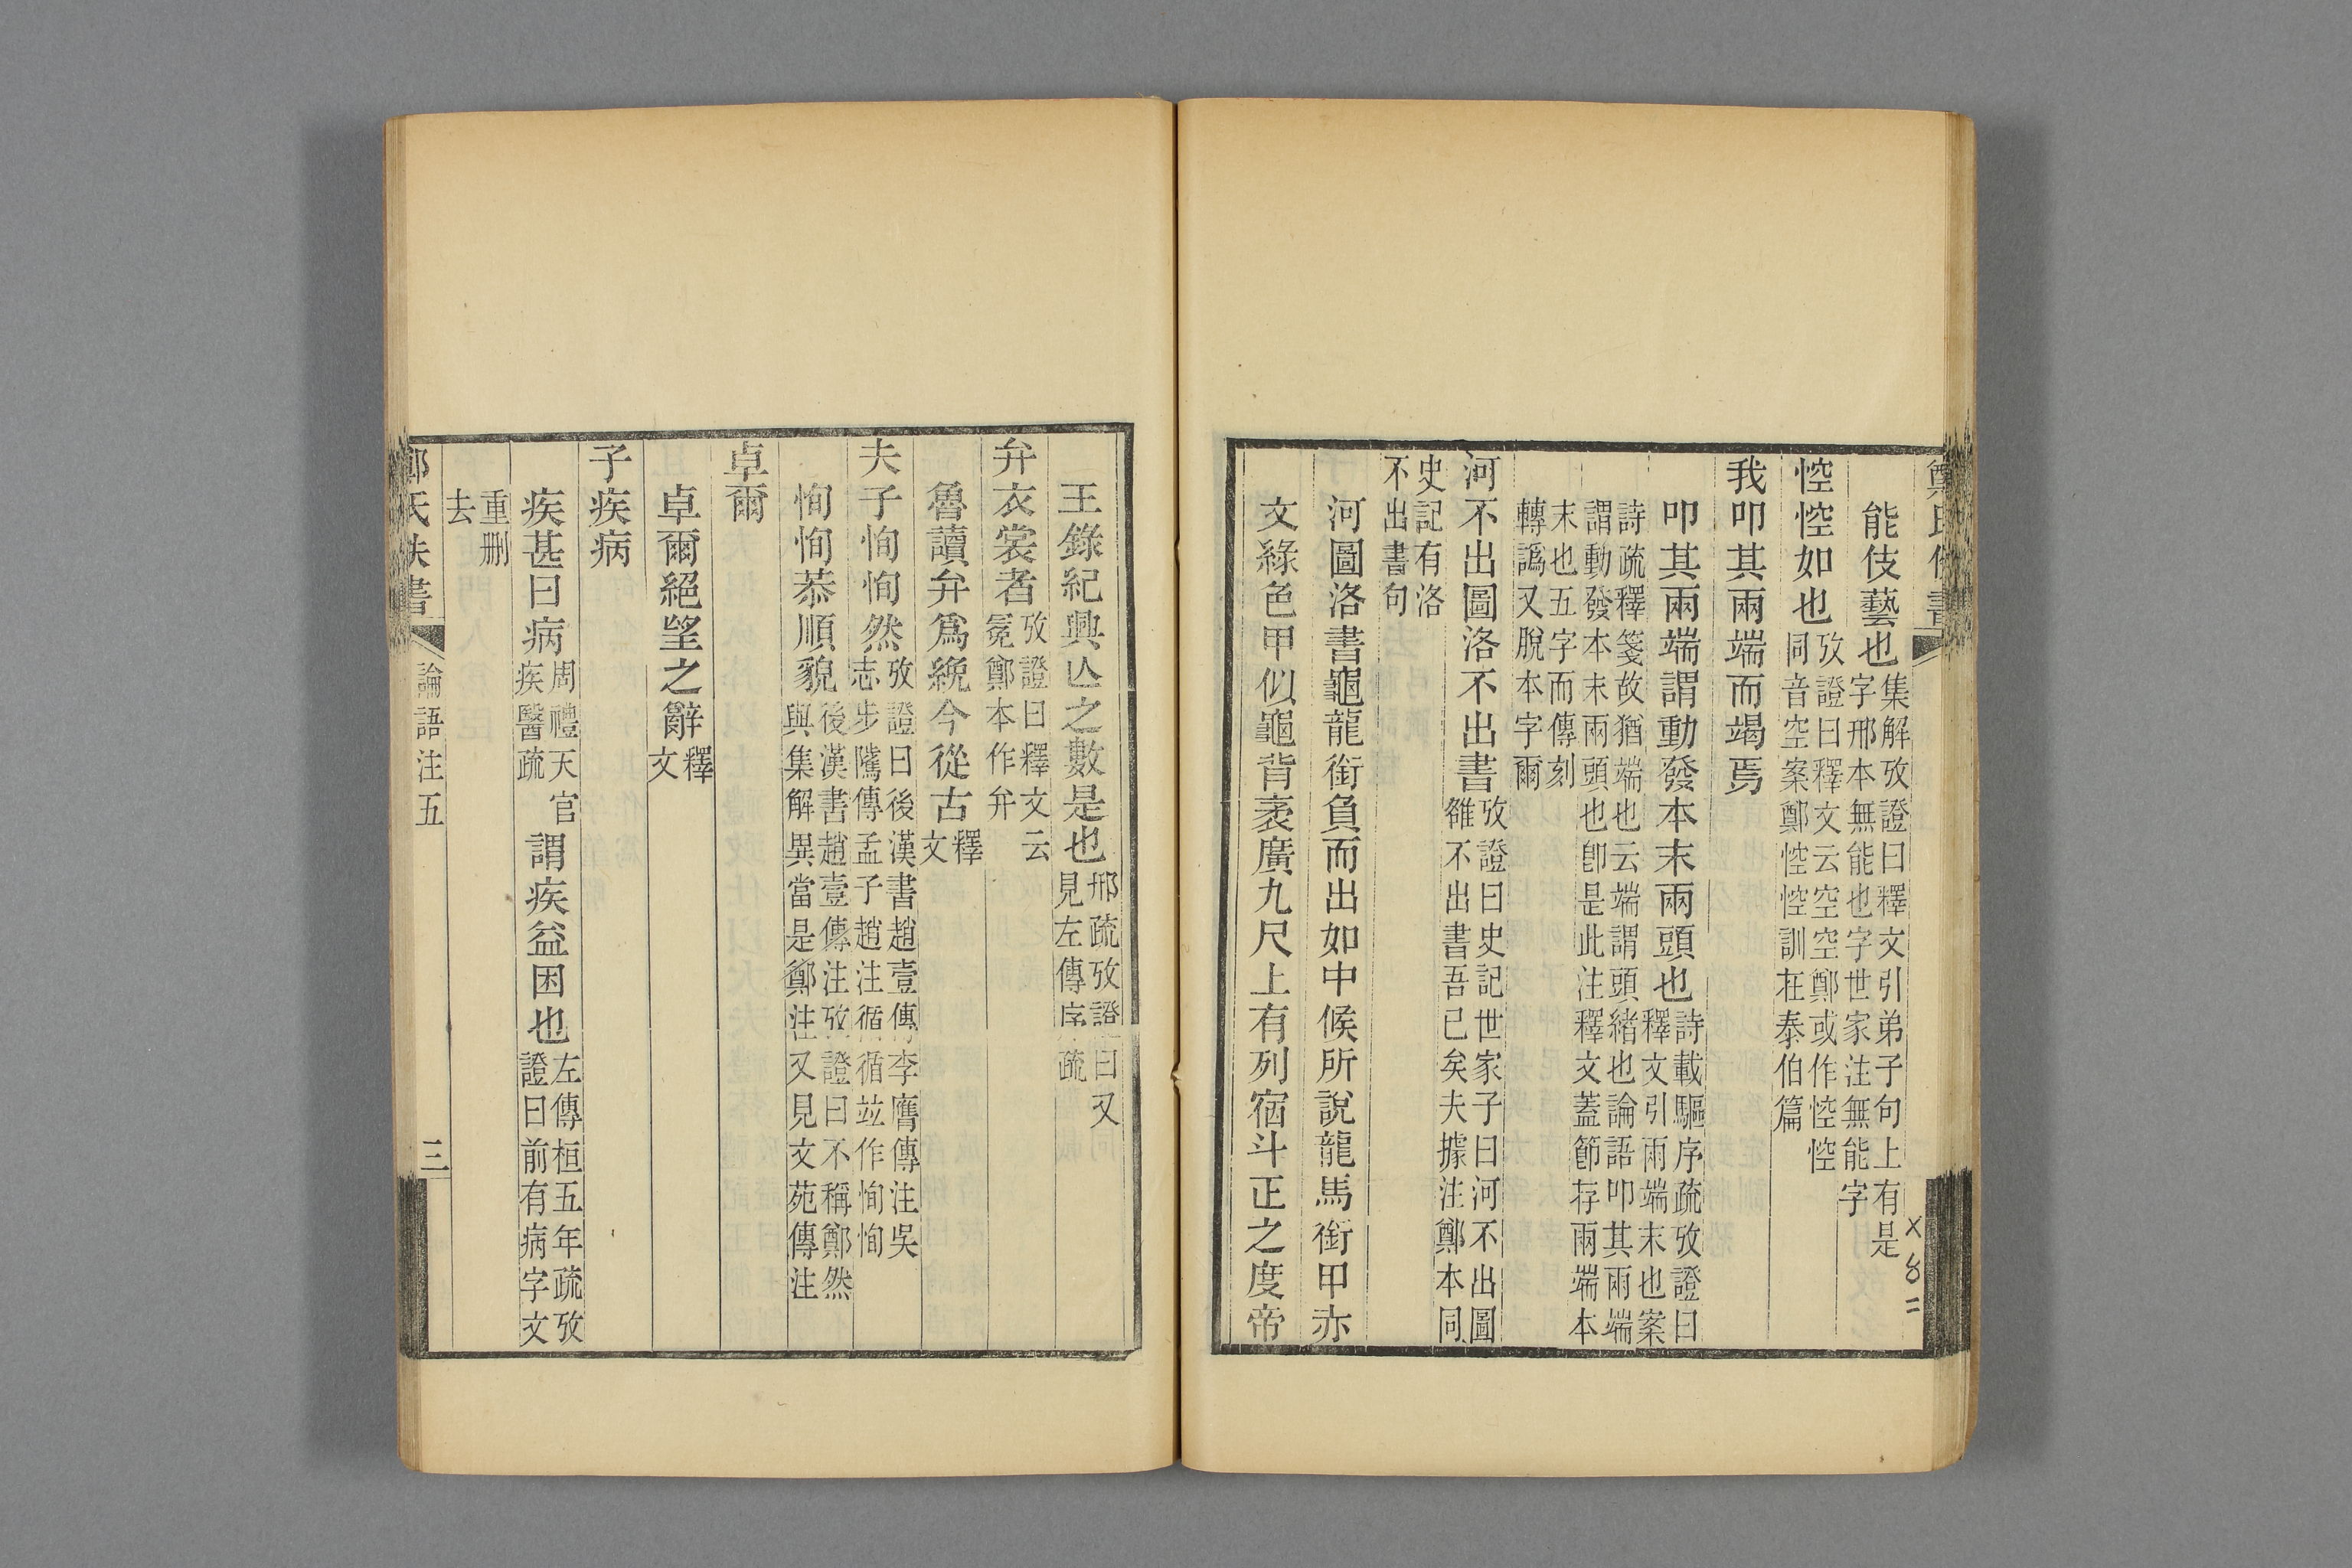 鄭氏佚書
能伎藝也集解攷證曰釋文引弟子句上有是
字邢本無能也字世家注無能字
悾悾如也攷證曰釋文云空空鄭或作悾悾
同音空案鄭悾悾訓在泰伯篇
我叩其兩端而竭焉
叩其兩端謂動發本末兩頭也詩載驅序疏攷證曰
釋文引兩端末也案
詩疏釋箋故猶端也云端謂頭緒也論語叩其兩端
謂動發本末兩頭也卽是此注釋文蓋節存兩端本
末也五字而傳刻
轉譌又脫本字爾
河不出圖洛不出書攷證曰史記世家子曰河不出圖
雒不出書吾已矣夫據注鄭本同
史記有洛
不出書句
河圖洛書龜龍銜負而出如中候所說龍馬銜甲赤
文綠色甲似龜背袤廣九尺上有列宿斗正之度帝
王錄紀興亾之數是也邢疏攷證曰又
見左傳序疏
弁衣裳者攷證曰釋文云
冕鄭本作弁
魯讀弁爲絻今從古釋
文
夫子恂恂然攷證曰後漢書趙壹傳李膺傳注吳
志步隲傳孟子趙注循循竝作恂恂
恂恂恭順貌後漢書趙壹傳注攷證曰不稱鄭然
與集解異當是鄭注又見文苑傳注
卓爾
卓爾絕望之辭釋
文
子疾病
疾甚曰病周禮天官
疾醫疏謂疾益困也左傳桓五年疏攷
證曰前有病字文
重刪
去
鄭氏佚書
論語注五
三